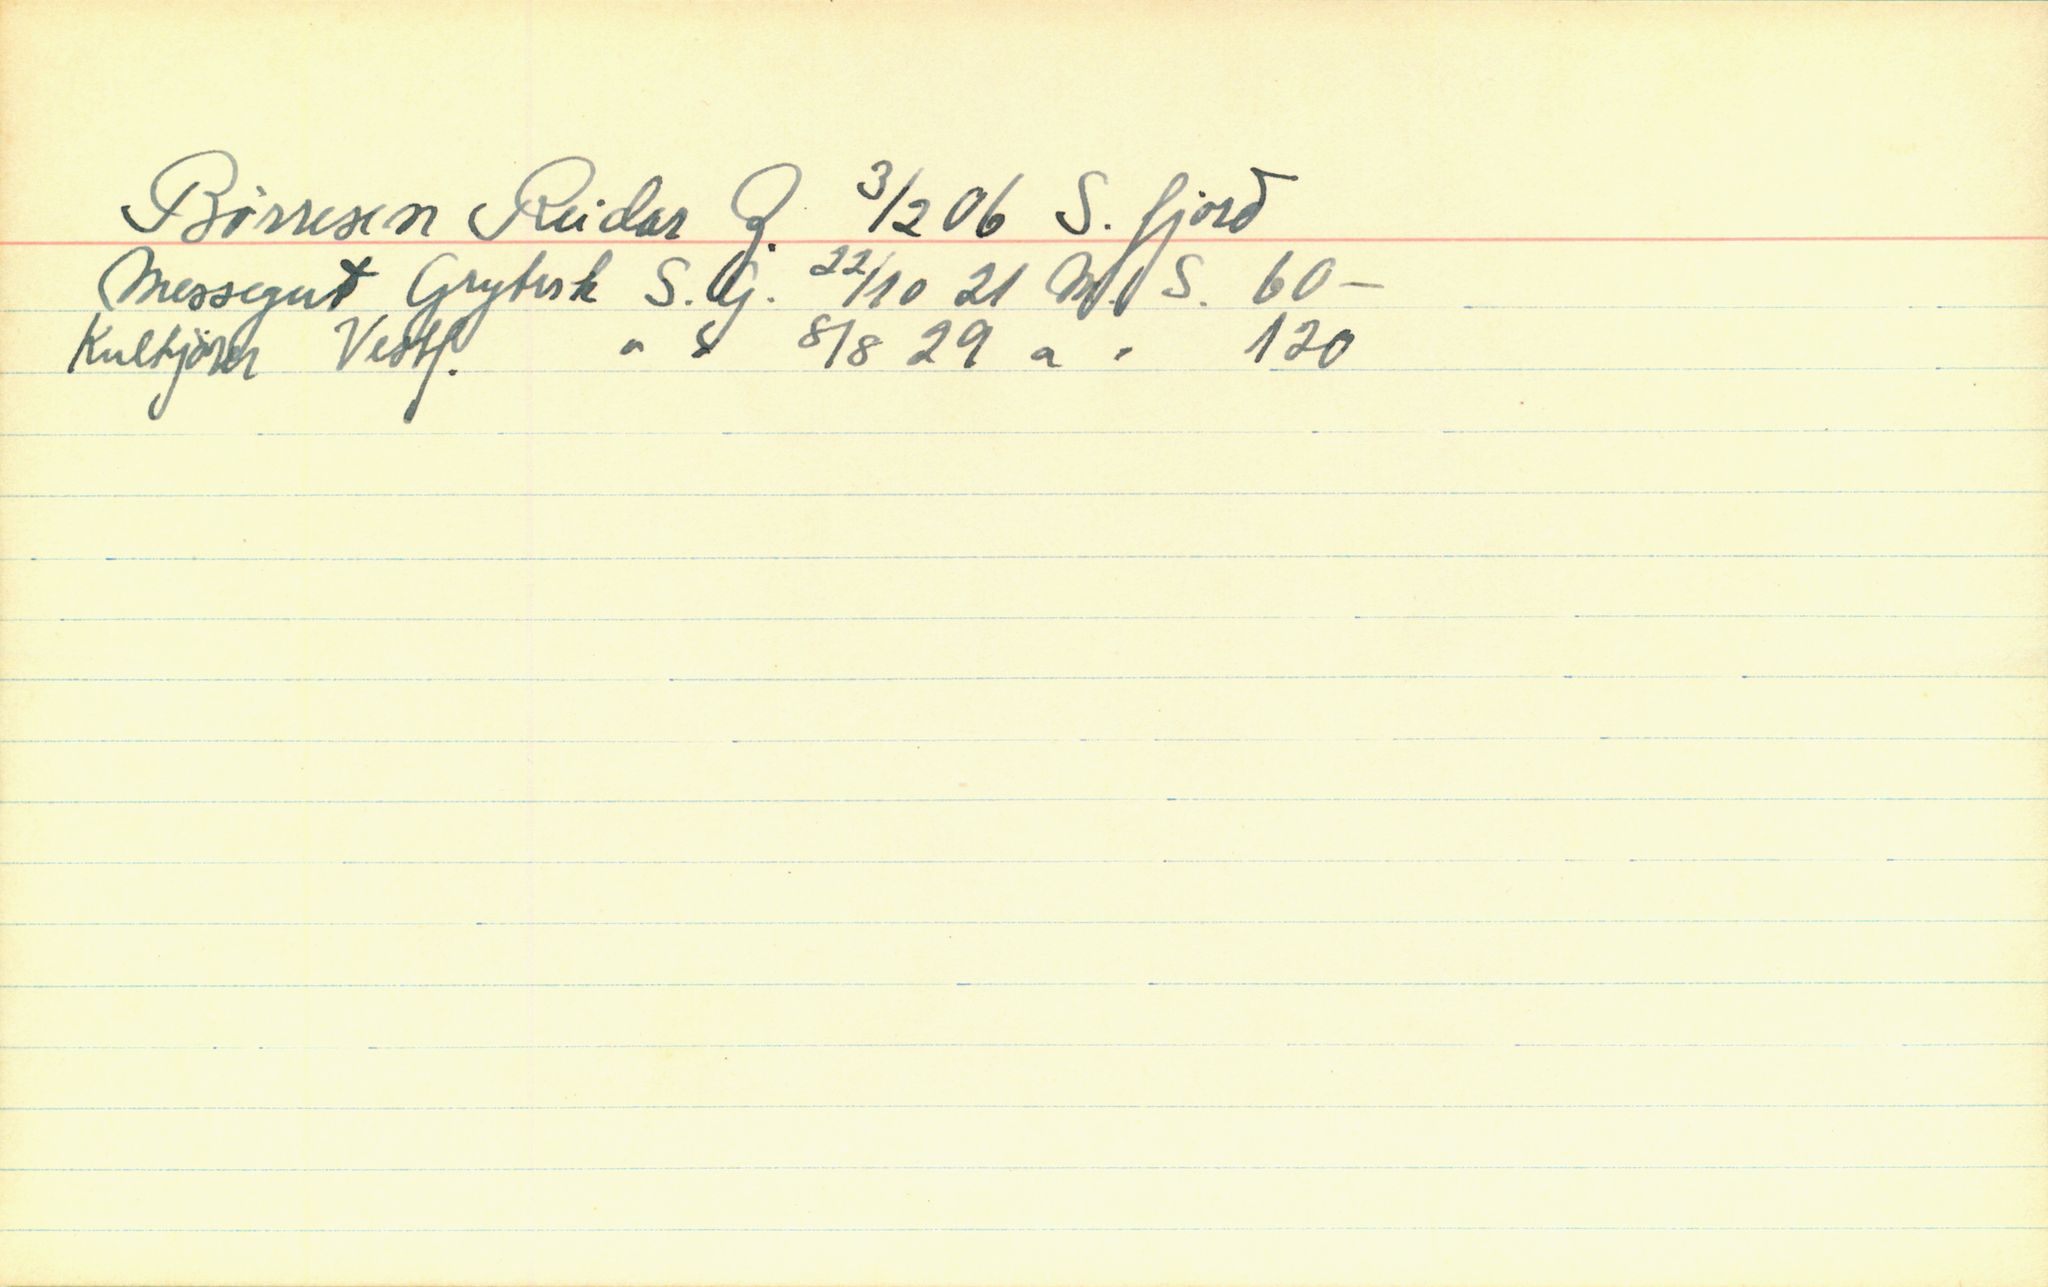 Børresen Reidar J. 3/2 06 S. fjord
Messegut Grytvik S.G. 22/10 21 M. S. 60 –
Kulkjører Vestf. " " 8/8 29 " " 120